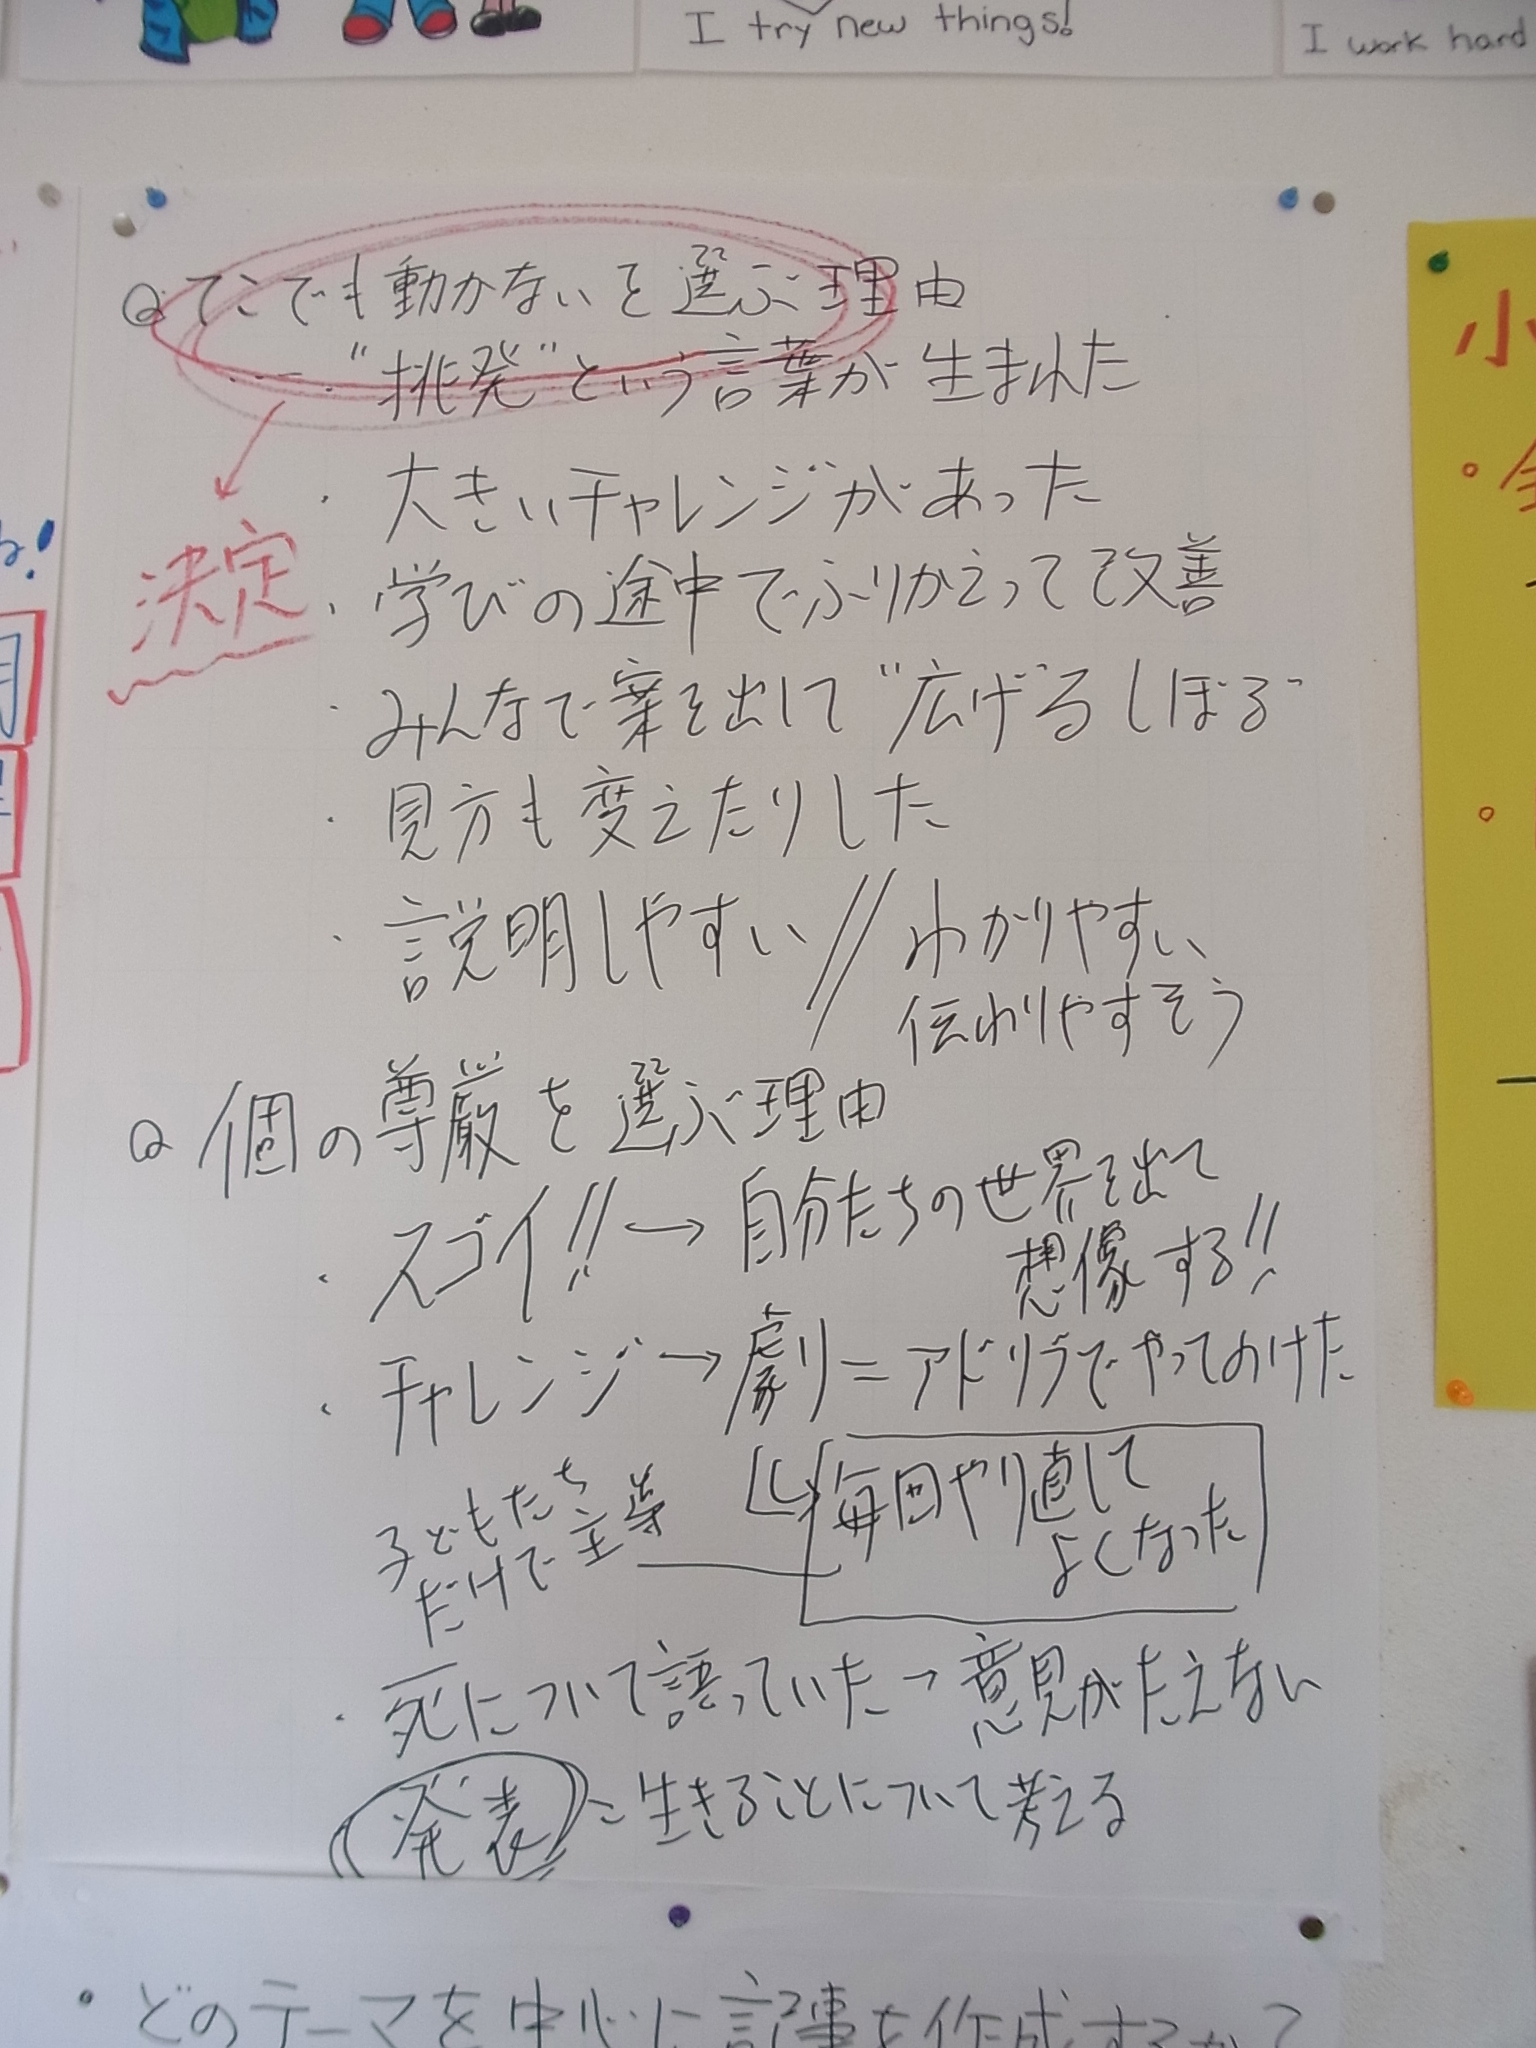 I try new things!
I work hard
Q てこでも動かないを選ぶ理由
"挑発"という言葉が生まれた
決定
・大きいチャレンジがあった
・学びの途中でふりかえって改善
・みんなで案を出して"広げるしぼる"
・見方も変えたりした
・説明しやすい // わかりやすい、
伝わりやすそう
Q 個の尊厳を選ぶ理由
・スゴイ!! → 自分たちの世界を出て
想像する!!
・チャレンジ → 劇 = アドリブでやってのけた
毎回やり直して
よくなった
子どもたち
だけで主導
・死について語っていた → 意見がたえない
発表 生きることについて考える
・どのテーマを中心に記事を作成するか?
小